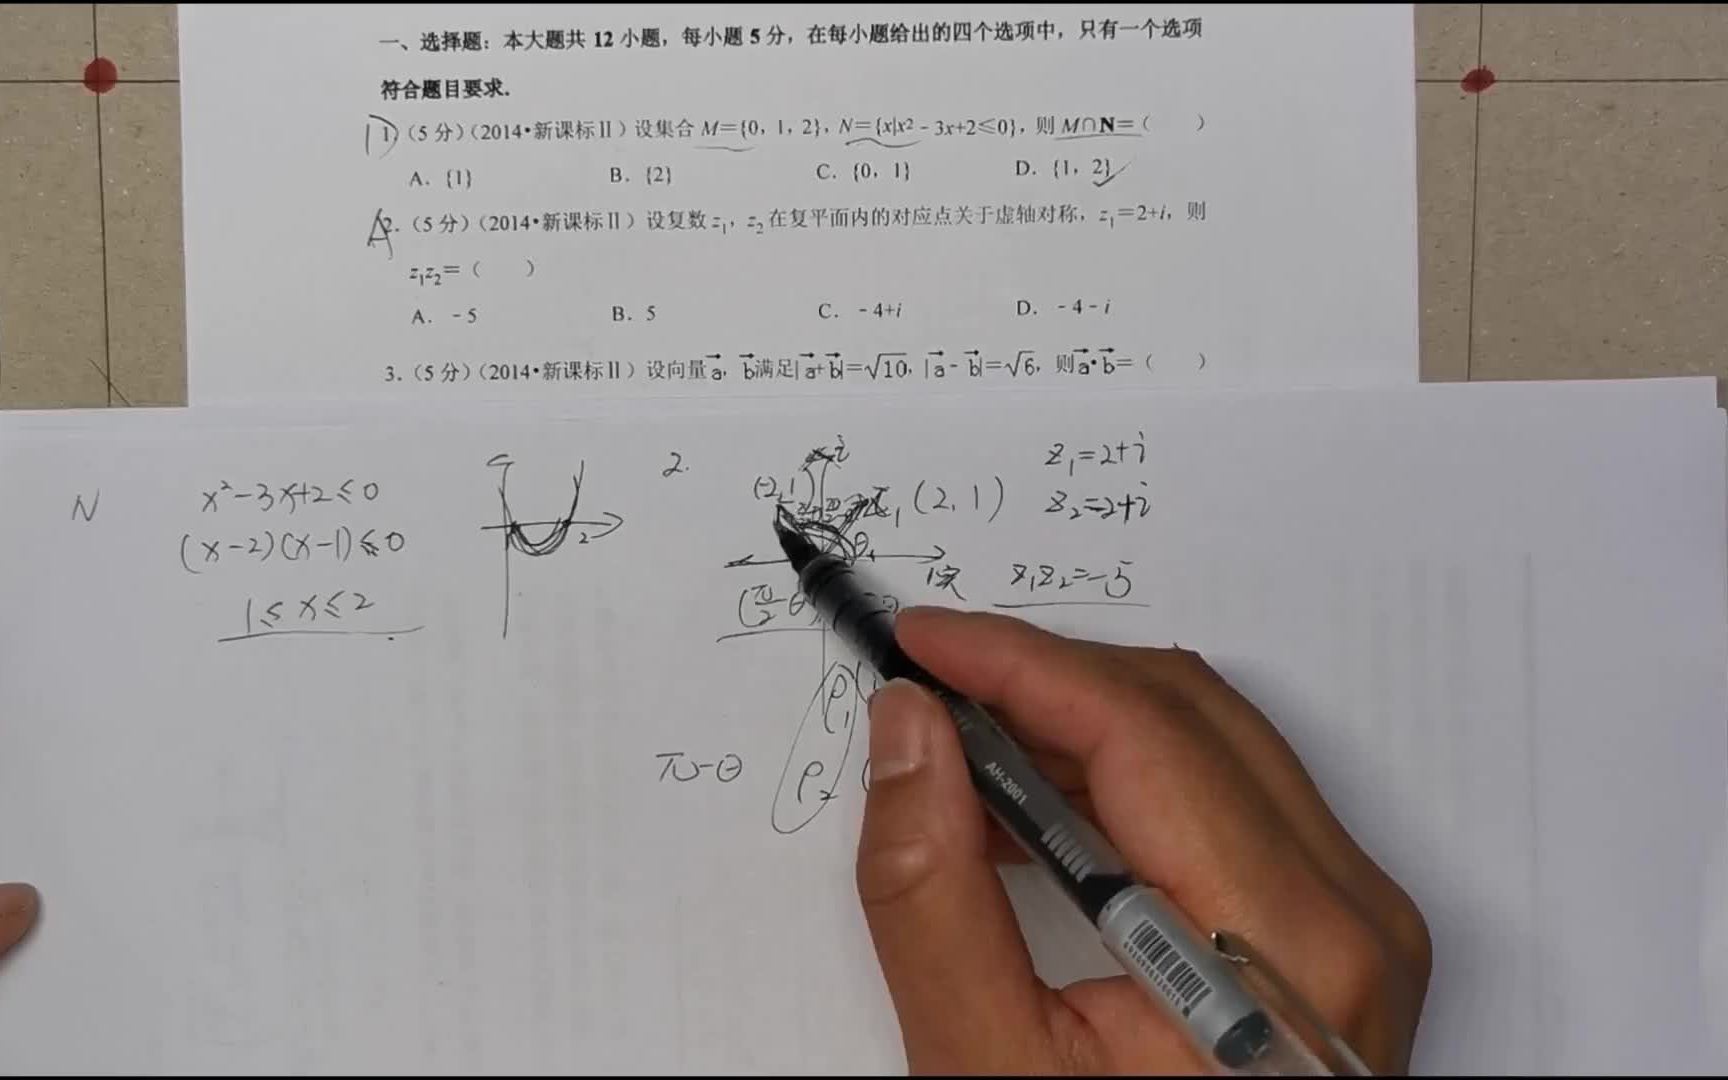 一、选择题：本大题共 12 小题，每小题 5 分，在每小题给出的四个选项中，只有一个选项
符合题目要求.
D 1.（5 分）（2014•新课标Ⅱ）设集合 M={0，1，2}，N={x|x²﹣3x+2≤0}，则 M∩N=（　　）
A．{1}　B．{2}　C．{0，1}　D．{1，2}
A 2.（5 分）（2014•新课标Ⅱ）设复数 z₁，z₂ 在复平面内的对应点关于虚轴对称，z₁=2+i，则
z₁z₂=（　　）
A．﹣5　B．5　C．﹣4+i　D．﹣4﹣i
3.（5 分）（2014•新课标Ⅱ）设向量a⃗，b⃗满足|a⃗+b⃗|=√10，|a⃗﹣b⃗|=√6，则a⃗•b⃗=（　　）
N
x²-3x+2≤0
(x-2)(x-1)≤0
1≤x≤2
2
2.
i
(-2,1)
z₁(2,1)
θ
实
(π/2-θ
z₁=2+i
z₂=-2+i
z₁z₂=-5
ρ₁
π-θ
ρ₂
AH-2001